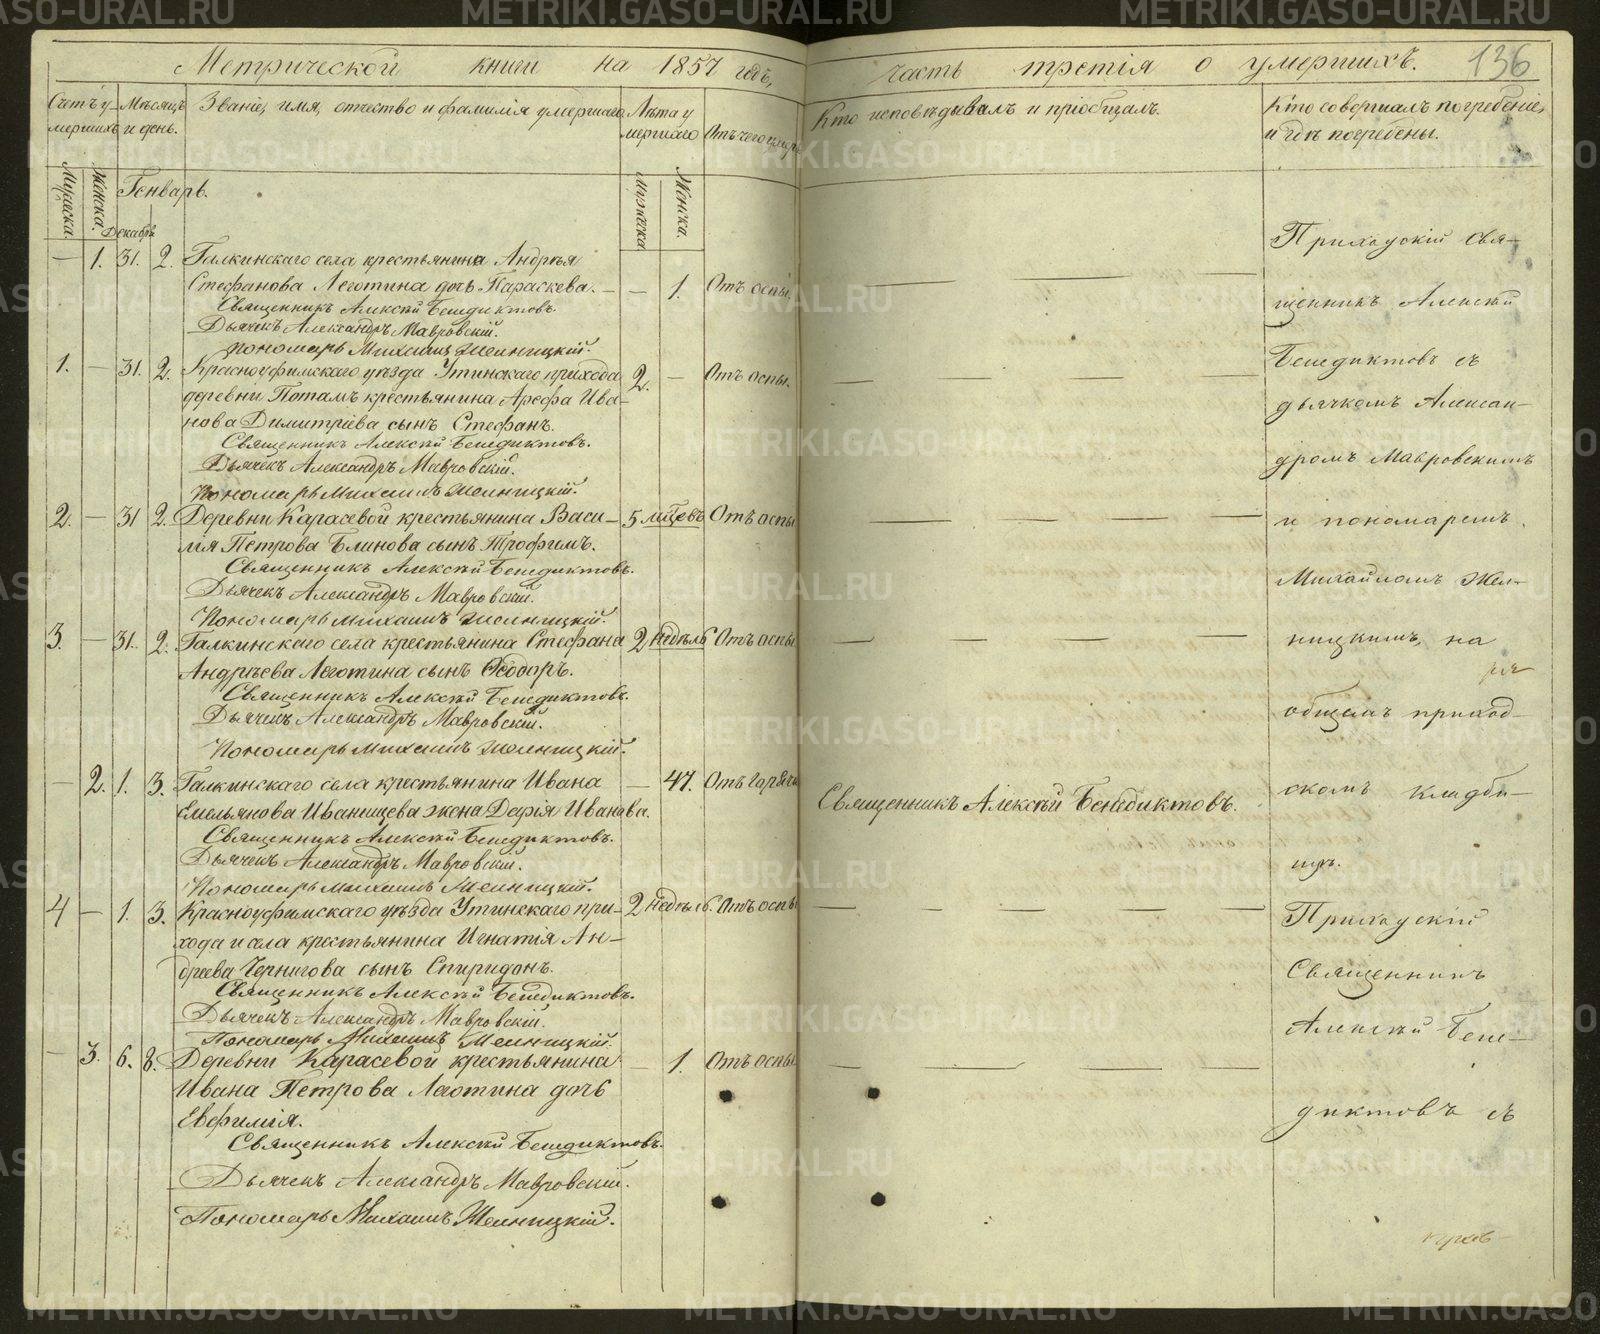 Метрической книги на 1857 годъ,
часть третія о умершихъ. 136
Счетъ у-
мершихъ
Мѣсяцъ
и день.
Званіе, имя, отчество и фамилія умершаго.
Лѣта у
мершаго
Отъ чего умеръ
Кто исповѣдывалъ и пріобщалъ.
Кто совершалъ погребеніе,
и гдѣ погребены.
Мужеска.
Женска.
Генварь.
Декабрь
Мужеска
Женска.
— 1. 31. 2. Галкинскаго села крестьянина Андрея
Стефанова Леготина дочь Параскева. — — 1. Отъ оспы.
Священникъ Алексѣй Бенедиктовъ.
Дьячекъ Александръ Мавровскій.
Пономарь Михаилъ Желницкій.
1. — 31. 2. Красноуфимскаго уѣзда Утинскаго прихода 2. — Отъ оспы.
деревни Потамъ крестьянина Арефа Ива-
нова Димитріева сынъ Стефанъ.
Священникъ Алексѣй Бенедиктовъ.
Дьячекъ Александръ Мавровскій.
Пономарь Михаилъ Желницкій.
2. — 31 2. Деревни Карасевой крестьянина Васи- 5 мѣсвъ Отъ оспы
лія Петрова Блинова сынъ Трофимъ.
Священникъ Алексѣй Бенедиктовъ.
Дьячекъ Александръ Мавровскій.
Пономарь Михаилъ Желницкій.
3. — 31. 2. Галкинскаго села крестьянина Стефана 2 недѣль Отъ оспы
Андрѣева Леготина сынъ Ѳеодоръ.
Священникъ Алексѣй Бенедиктовъ.
Дьячекъ Александръ Мавровскій.
Пономарь Михаилъ Желницкій.
— 2. 1. 3. Галкинскаго села крестьянина Ивана — 47. Отъ горячк
Емельянова Иванищева жена Дарія Иванова.
Священникъ Алексѣй Бенедиктовъ.
Священникъ Алексѣй Бенедиктовъ.
Дьячекъ Александръ Мавровскій.
Пономарь Михаилъ Желницкій.
4 — 1. 3. Красноуфимскаго уѣзда Утинскаго при- 2 недѣль. Отъ оспы
хода и села крестьянина Игнатія Ан-
дреева Чернигова сынъ Спиридонъ.
Священникъ Алексѣй Бенедиктовъ.
Дьячекъ Александръ Мавровскій.
Пономарь Михаилъ Желницкій.
— 3. 6. 8. Деревни Карасевой крестьянина — 1. Отъ оспы
Ивана Петрова Леготина дочь
Евфимія.
Священникъ Алексѣй Бенедиктовъ.
Дьячекъ Александръ Мавровскій.
Пономарь Михаилъ Желницкій.
Приходскій Свя-
щенникъ Алексѣй
Бенедиктовъ съ
дьячкомъ Алексан-
дромъ Мавровскимъ
и пономаремъ
Михаиломъ Жел-
ницкимъ, на
общемъ приход-
скомъ кладби-
щѣ.
Приходскій
Священникъ
Алексѣй Бене-
диктовъ съ
METRIKI.GASO-URAL.RU